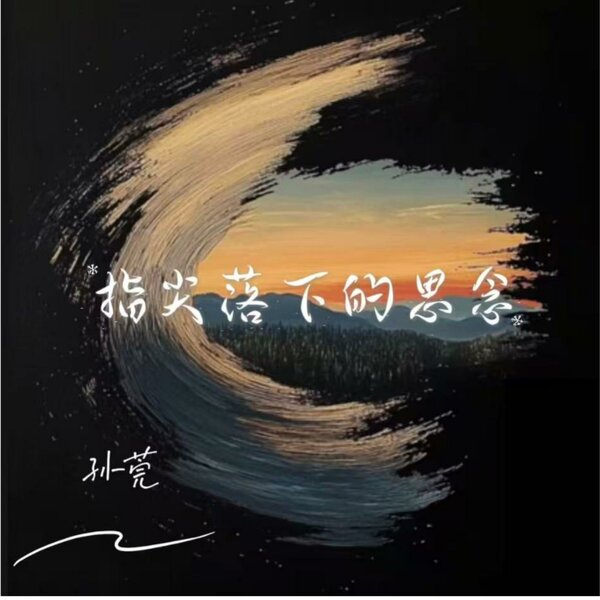 *指尖落下的思念*
孙一莞